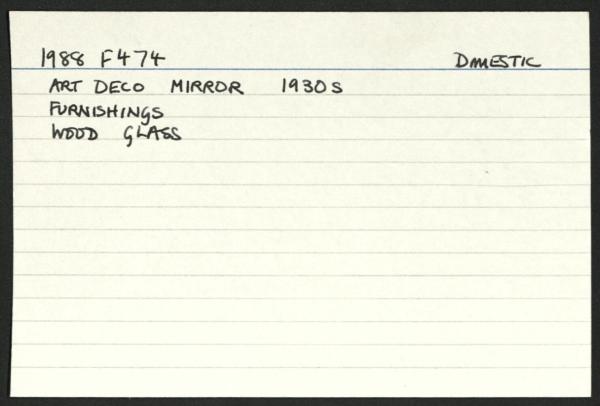 1988 F474 DOMESTIC
ART DECO MIRROR 1930s
FURNISHINGS
WOOD GLASS